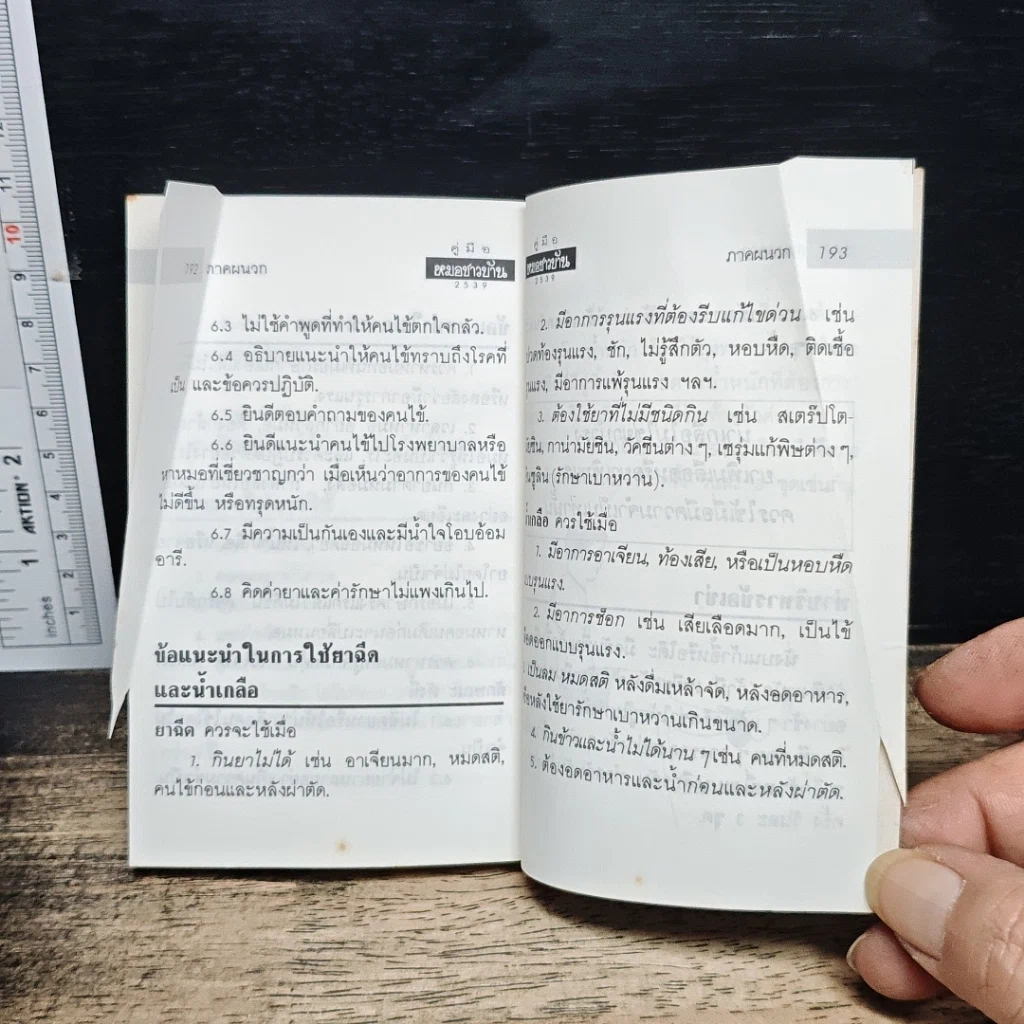 192 ภาคผนวก
คู่มือ
หมอชาวบ้าน
2539
6.3 ไม่ใช้คำพูดที่ทำให้คนไข้ตกใจกลัว.
6.4 อธิบายแนะนำให้คนไข้ทราบถึงโรคที่
เป็น และข้อควรปฏิบัติ.
6.5 ยินดีตอบคำถามของคนไข้.
6.6 ยินดีแนะนำคนไข้ไปโรงพยาบาลหรือ
หาหมอที่เชี่ยวชาญกว่า เมื่อเห็นว่าอาการของคนไข้
ไม่ดีขึ้น หรือทรุดหนัก.
6.7 มีความเป็นกันเองและมีน้ำใจโอบอ้อม
อารี.
6.8 คิดค่ายาและค่ารักษาไม่แพงเกินไป.
ข้อแนะนำในการใช้ยาฉีด
และน้ำเกลือ
ยาฉีด ควรจะใช้เมื่อ
1. กินยาไม่ได้ เช่น อาเจียนมาก, หมดสติ,
คนไข้ก่อนและหลังผ่าตัด.
คู่มือ
หมอชาวบ้าน
2539
ภาคผนวก 193
2. มีอาการรุนแรงที่ต้องรีบแก้ไขด่วน เช่น
ปวดท้องรุนแรง, ชัก, ไม่รู้สึกตัว, หอบหืด, ติดเชื้อ
รุนแรง, มีอาการแพ้รุนแรง ฯลฯ.
3. ต้องใช้ยาที่ไม่มีชนิดกิน เช่น สเตร็ปโต-
มัยซิน, กาน่ามัยซิน, วัคซีนต่าง ๆ, เซรุ่มแก้พิษต่าง ๆ,
อินซูลิน (รักษาเบาหวาน).
น้ำเกลือ ควรใช้เมื่อ
1. มีอาการอาเจียน, ท้องเสีย, หรือเป็นหอบหืด
แบบรุนแรง.
2. มีอาการช็อก เช่น เสียเลือดมาก, เป็นไข้
เลือดออกแบบรุนแรง.
3. เป็นลม หมดสติ หลังดื่มเหล้าจัด, หลังอดอาหาร,
หรือหลังใช้ยารักษาเบาหวานเกินขนาด.
4. กินข้าวและน้ำไม่ได้นาน ๆ เช่น คนที่หมดสติ.
5. ต้องอดอาหารและน้ำก่อนและหลังผ่าตัด.
ACTION
inches
1
2
3
4
5
6
7
8
9
10
11
1
2